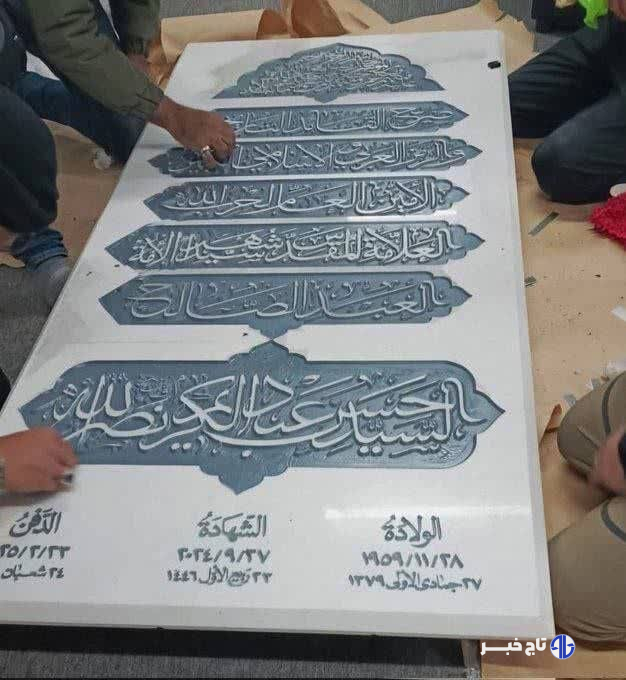 ضريح القائد التاريخي
الأمين العام لحزب الله
العلامة المقدس شهيد الأمة
العبد الصالح
السيد حسن عبد الكريم نصر الله
الولادة
١٩٥٩/١١/٢٨
٢٧ جمادى الأولى ١٣٧٩
الشهادة
٢٠٢٤/٩/٢٧
٢٣ ربيع الأول ١٤٤٦
الدفن
٢٥/٢/٢٣
٢٤ شعبان
تاج خبر